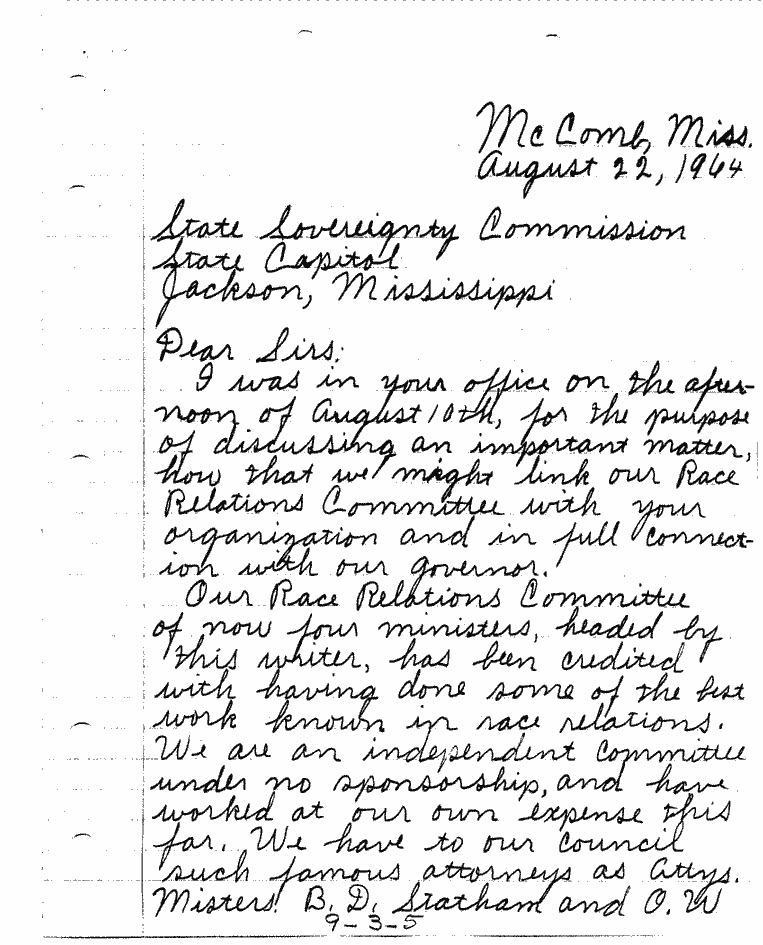 Mc Comb, Miss.
August 22, 1964
State Sovereignty Commission
State Capitol
Jackson, Mississippi
Dear Sirs:
I was in your office on the after-
noon of August 10th, for the purpose
of discussing an important matter,
how that we might link our Race
Relations Committee with your
organization and in full connect-
ion with our governor.
Our Race Relations Committee
of now four ministers, headed by
this writer, has been credited
with having done some of the best
work known in race relations.
We are an independent committee
under no sponsorship, and have
worked at our own expense this
far. We have to our council
such famous attorneys as Attys.
Misters. B. D. Statham and O. W
9-3-5